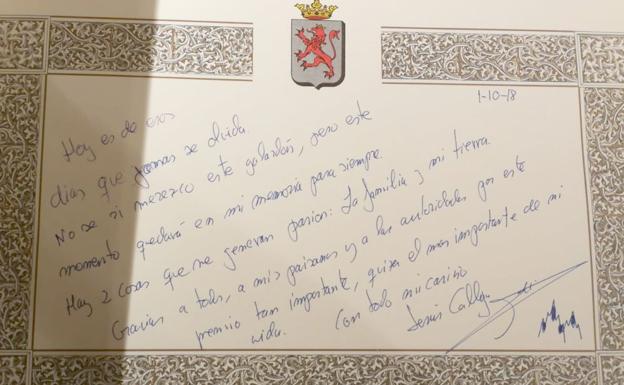 1-10-18
Hoy es de esos
días que jamas se olvida.
No se si merezco este galardón, pero este
momento quedará en mi memoria para siempre.
Hay 2 cosas que me generan pasion: La familia y mi tierra.
Gracias a todos, a mis paisanos y a las autoridades por este
premio tan importante, quizá el mas importante de mi
vida.
Con todo mi cariño
Jesús Calleja